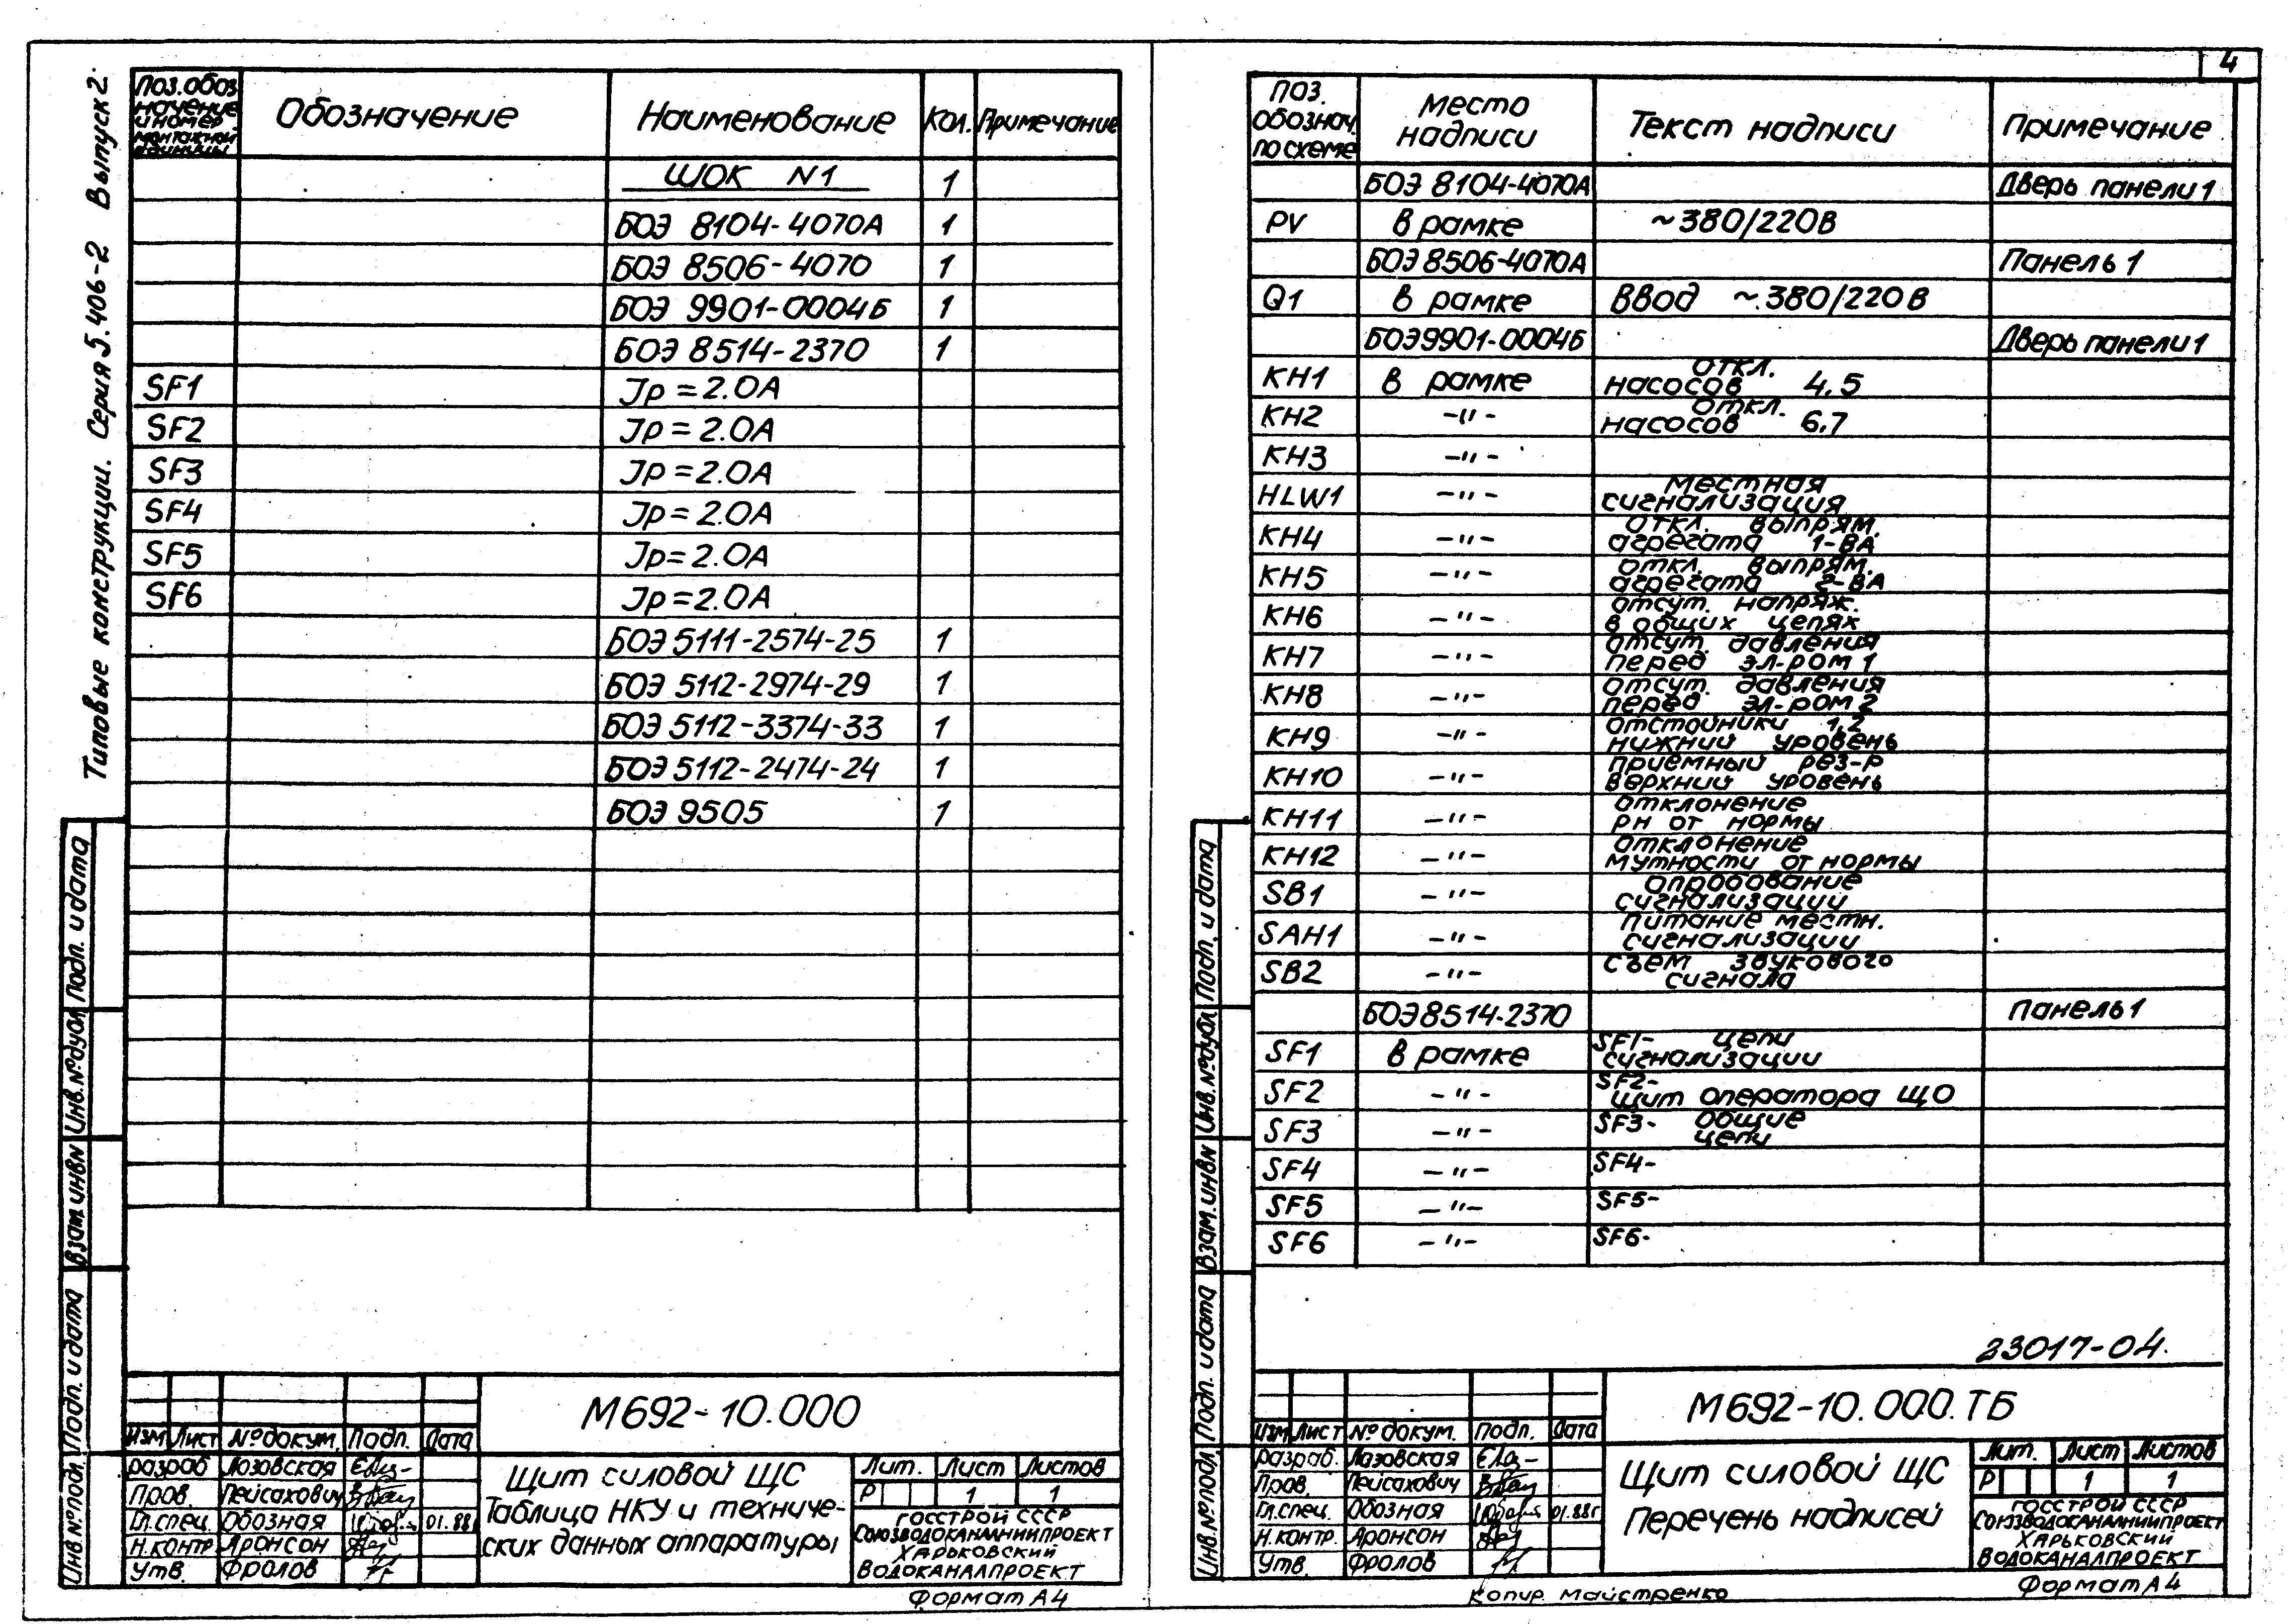 Типовые конструкции. Серия 5.406-2 Выпуск 2
Поз.обоз
начение
и номер
монтажной
единицы
Обозначение
Наименование
Кол.
Примечание
ШОК N1 1
БОЭ 8104-4070А 1
БОЭ 8506-4070 1
БОЭ 9901-0004Б 1
БОЭ 8514-2370 1
SF1 Jр=2.0А
SF2 Jр=2.0А
SF3 Jр=2.0А
SF4 Jр=2.0А
SF5 Jр=2.0А
SF6 Jр=2.0А
БОЭ 5111-2574-25 1
БОЭ 5112-2974-29 1
БОЭ 5112-3374-33 1
БОЭ 5112-2474-24 1
БОЭ 9505 1
Подп. и дата
Инв.№дубл
Взам инвN
Подп. и дата
Инв №подл.
М692-10.000
Изм Лист №докум. Подп. Дата
Разраб Лозовская
Пров. Пейсахович
Гл.спец. Обозная 01.88г
Н.контр Аронсон
Утв. Фролов
Щит силовой ЩС
Таблица НКУ и техниче-
ских данных аппаратуры
Лит. Лист Листов
Р 1 1
ГОССТРОЙ СССР
СОЮЗВОДОКАНАЛНИИПРОЕКТ
ХАРЬКОВСКИЙ
ВОДОКАНАЛПРОЕКТ
Формат А4
4
Поз.
обознач.
по схеме
Место
надписи
Текст надписи
Примечание
БОЭ 8104-4070А Дверь панели 1
PV в рамке ~380/220В
БОЭ 8506-4070А Панель 1
Q1 в рамке Ввод ~380/220В
БОЭ9901-0004Б Дверь панели 1
КН1 в рамке откл.
насосов 4,5
КН2 -"- откл.
насосов 6,7
КН3 -"-
HLW1 -"- местная
сигнализация
КН4 -"- откл. выпрям.
агрегата 1-ВА
КН5 -"- откл. выпрям.
агрегата 2-ВА
КН6 -"- отсут. напряж.
в общих цепях
КН7 -"- отсут. давления
перед эл-ром 1
КН8 -"- отсут. давления
перед эл-ром 2
КН9 -"- отстойники 1,2
нижний уровень
КН10 -"- приемный рез-р
верхний уровень
КН11 -"- отклонение
рн от нормы
КН12 -"- отклонение
мутности от нормы
SB1 -"- опробование
сигнализации
SAH1 -"- питание местн.
сигнализации
SB2 -"- съем звукового
сигнала
БОЭ8514-2370 Панель 1
SF1 в рамке SF1- цепи
сигнализации
SF2 -"- SF2-
щит оператора ЩО
SF3 -"- SF3- общие
цепи
SF4 -"- SF4-
SF5 -"- SF5-
SF6 -"- SF6-
Подп. и дата
Инв.№дубл
Взам.инвN
Подп. и дата
Инв.№подл.
23017-04.
М692-10.000.ТБ
Изм Лист №докум. Подп. Дата
Разраб. Лазовская
Пров. Пейсахович
Гл.спец. Обозная 01.88г
Н.контр. Аронсон
Утв. Фролов
Щит силовой ЩС
Перечень надписей
Лит. Лист Листов
Р 1 1
ГОССТРОЙ СССР
СОЮЗВОДОКАНАЛНИИПРОЕКТ
ХАРЬКОВСКИЙ
ВОДОКАНАЛПРОЕКТ
Копир. Майстренко
Формат А4